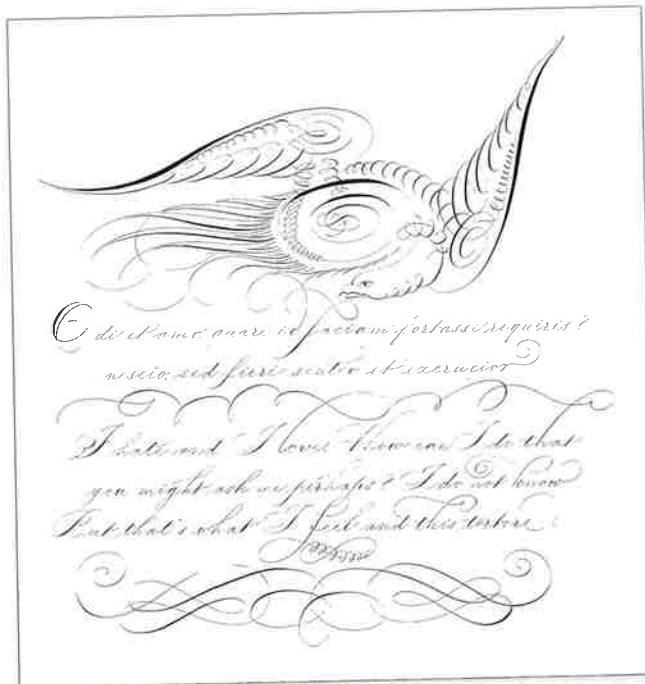 Odi et amo: quare id faciam fortasse requiris?
nescio: sed fieri sentio et excrucior
I hate and I love. How can I do that
you might ask me perhaps? I do not know
But that's what I feel and this torture